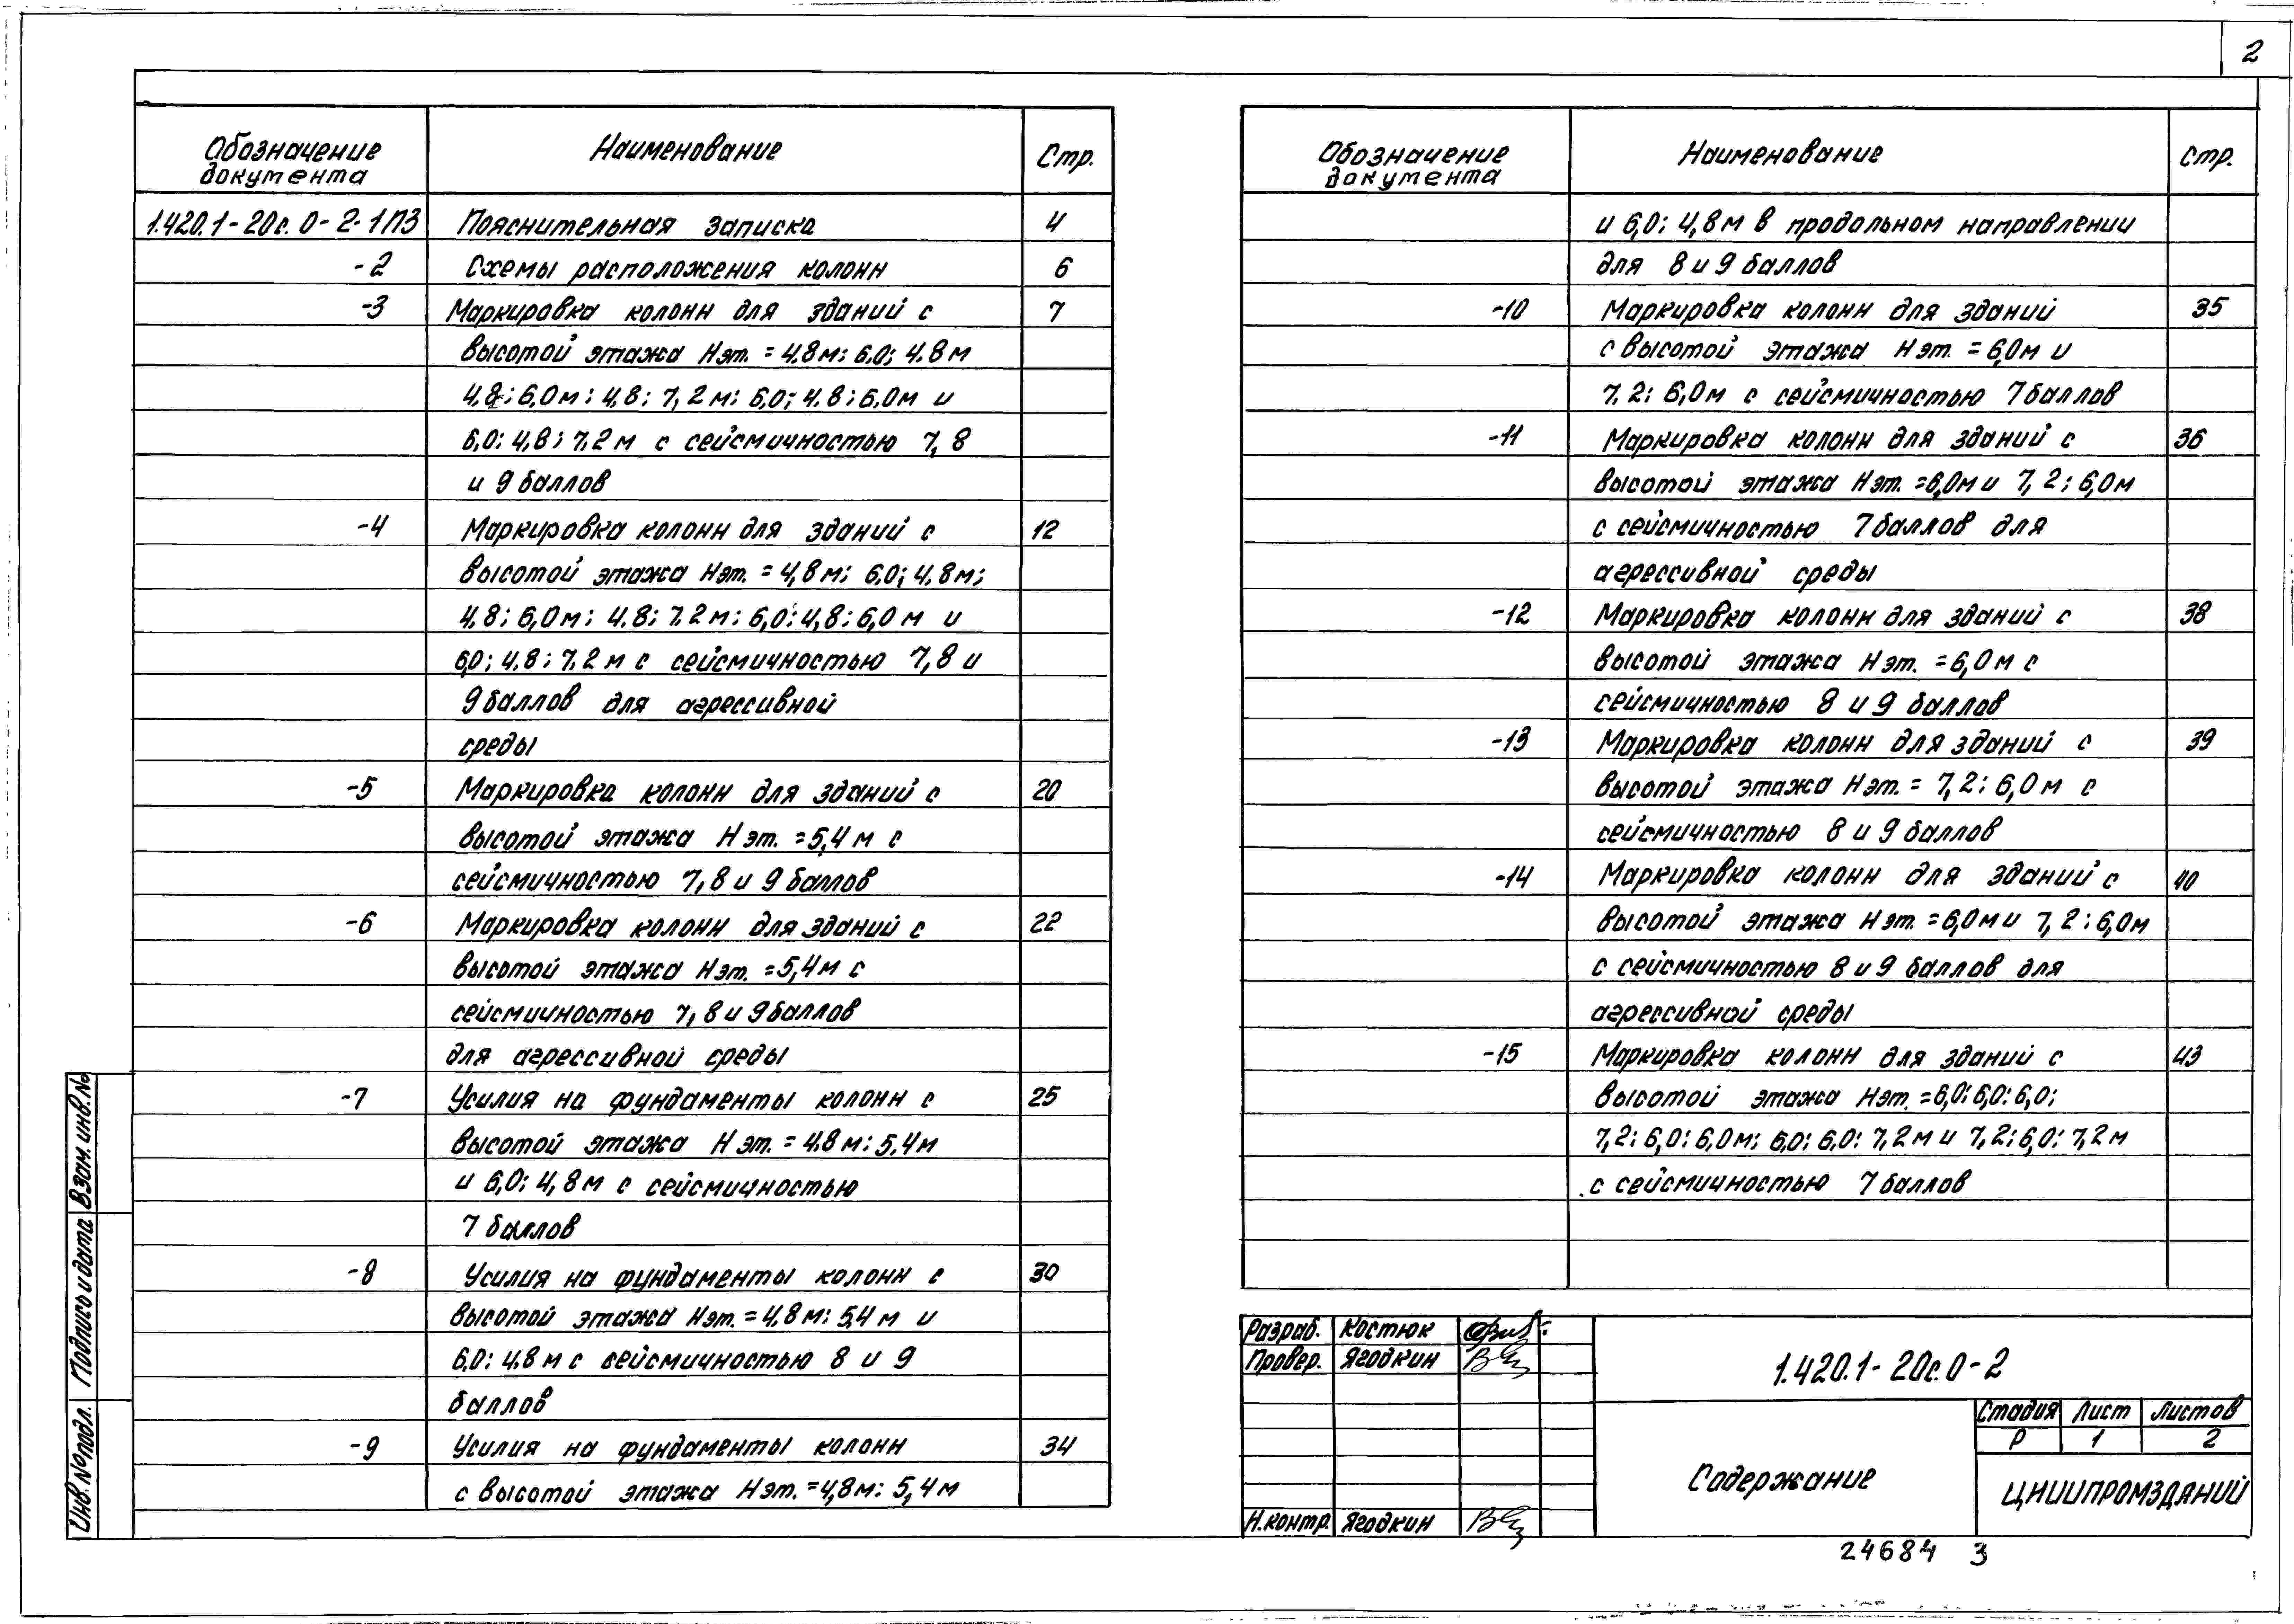 2
Обозначение документа Наименование Стр.
1.420.1-20с.0-2-1ПЗ Пояснительная записка 4
-2 Схемы расположения колонн 6
-3 Маркировка колонн для зданий с 7
высотой этажа Нэт. = 4.8м; 6.0; 4.8м
4,8; 6,0м; 4,8; 7,2м; 6,0; 4.8; 6.0м и
6,0; 4,8; 7,2м с сейсмичностью 7, 8
и 9 баллов
-4 Маркировка колонн для зданий с 12
высотой этажа Нэт. = 4,8м; 6.0; 4,8м;
4,8; 6,0м; 4.8; 7.2м; 6,0; 4,8; 6,0м и
6,0; 4.8; 7.2м с сейсмичностью 7,8 и
9 баллов для агрессивной
среды
-5 Маркировка колонн для зданий с 20
высотой этажа Нэт. = 5,4м с
сейсмичностью 7,8 и 9 баллов
-6 Маркировка колонн для зданий с 22
высотой этажа Нэт. = 5,4м с
сейсмичностью 7,8 и 9 баллов
для агрессивной среды
-7 Усилия на фундаменты колонн с 25
высотой этажа Нэт. = 4.8м; 5,4м
и 6,0; 4,8м с сейсмичностью
7 баллов
-8 Усилия на фундаменты колонн с 30
высотой этажа Нэт. = 4,8м; 5,4м и
6,0; 4.8м с сейсмичностью 8 и 9
баллов
-9 Усилия на фундаменты колонн 34
с высотой этажа Нэт. = 4,8м; 5,4м
Обозначение документа Наименование Стр.
и 6,0; 4,8м в продольном направлении
для 8 и 9 баллов
-10 Маркировка колонн для зданий 35
с высотой этажа Нэт. = 6,0м и
7,2; 6,0м с сейсмичностью 7 баллов
-11 Маркировка колонн для зданий с 36
высотой этажа Нэт. = 6,0м и 7,2; 6,0м
с сейсмичностью 7 баллов для
агрессивной среды
-12 Маркировка колонн для зданий с 38
высотой этажа Нэт. = 6,0м с
сейсмичностью 8 и 9 баллов
-13 Маркировка колонн для зданий с 39
высотой этажа Нэт. = 7,2; 6,0м с
сейсмичностью 8 и 9 баллов
-14 Маркировка колонн для зданий с 40
высотой этажа Нэт. = 6,0м и 7,2; 6,0м
с сейсмичностью 8 и 9 баллов для
агрессивной среды
-15 Маркировка колонн для зданий с 43
высотой этажа Нэт. = 6,0; 6,0; 6,0;
7,2; 6,0; 6,0м; 6,0; 6,0; 7,2м и 7,2; 6,0; 7,2м
с сейсмичностью 7 баллов
Разраб. Костюк
Провер. Ягодкин
Н.контр. Ягодкин
1.420.1-20с.0-2
Содержание
Стадия Лист Листов
Р 1 2
ЦНИИПРОМЗДАНИЙ
24684 3
Инв.№подл. Подпись и дата Взам.инв.№